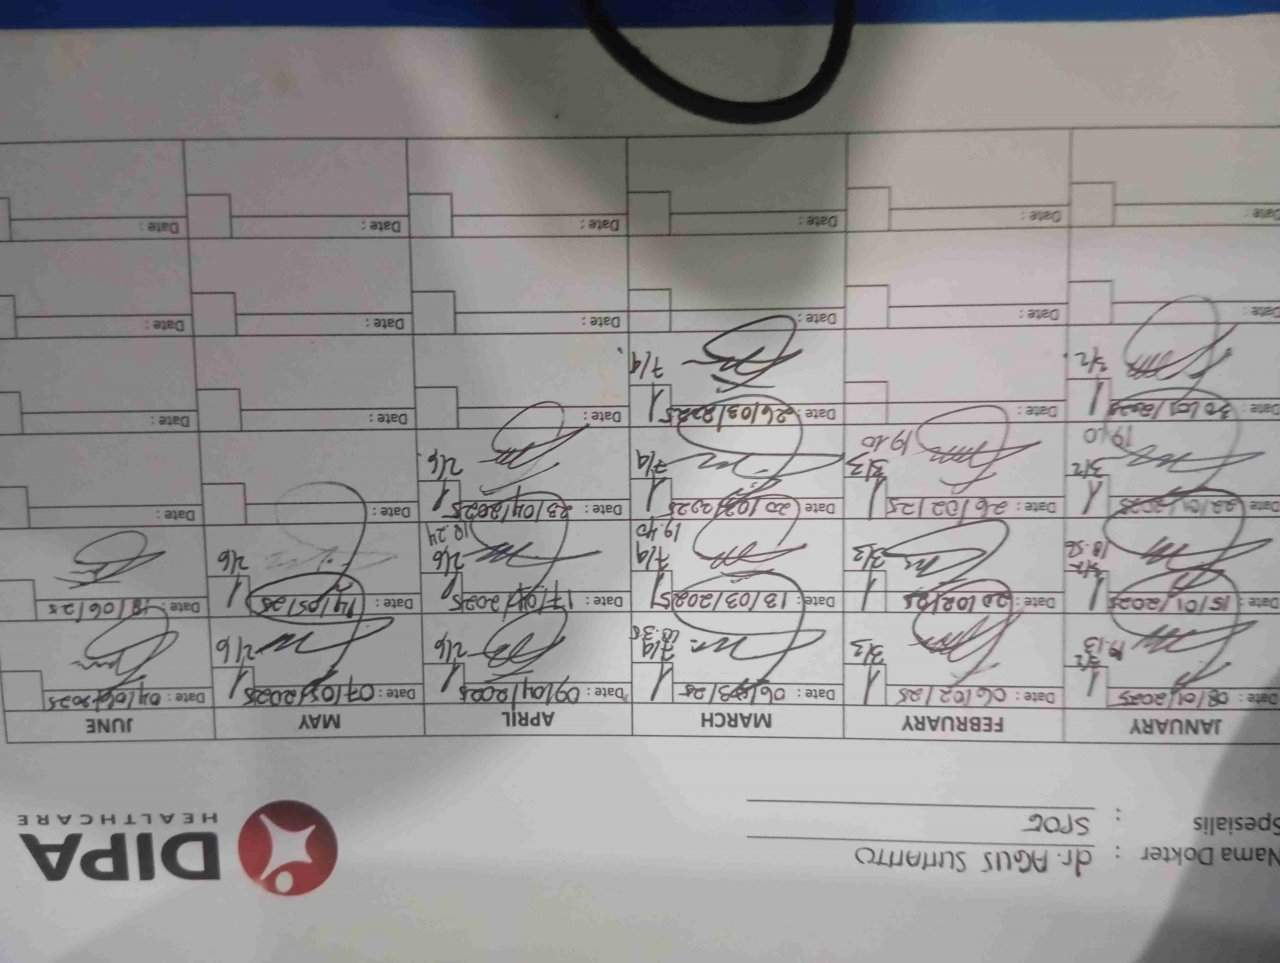 Nama Dokter : dr. AGUS SUTIANTO
Spesialis : SPOG
DIPA
HEALTHCARE
JANUARY FEBRUARY MARCH APRIL MAY JUNE
Date : 08/01/2025 1 Date : 06/02/25 1 Date : 06/03/25 1 Date : 09/04/2025 1 Date : 07/05/2025 1 Date : 04/06/2025
3/2 19.13 3/3 7/4 18.38 2/6 2/6
Date : 15/01/2025 1 Date : 20/02/25 1 Date : 13/03/2025 1 Date : 17/04/2025 1 Date : 14/05/25 1 Date : 18/06/25
3/2 18.56 3/3 7/4 19.40 2/6 18.24 2/6
Date : 22/01/2025 1 Date : 26/02/25 1 Date : 20/03/2025 1 Date : 23/04/2025 1 Date : Date :
3/2 19.10 3/3 19.10 7/4 2/6
Date : 30/01/2025 1 Date : Date : 26/03/2025 1 Date : Date : Date :
3/2 7/4
Date : Date : Date : Date : Date : Date :
Date : Date : Date : Date : Date : Date :